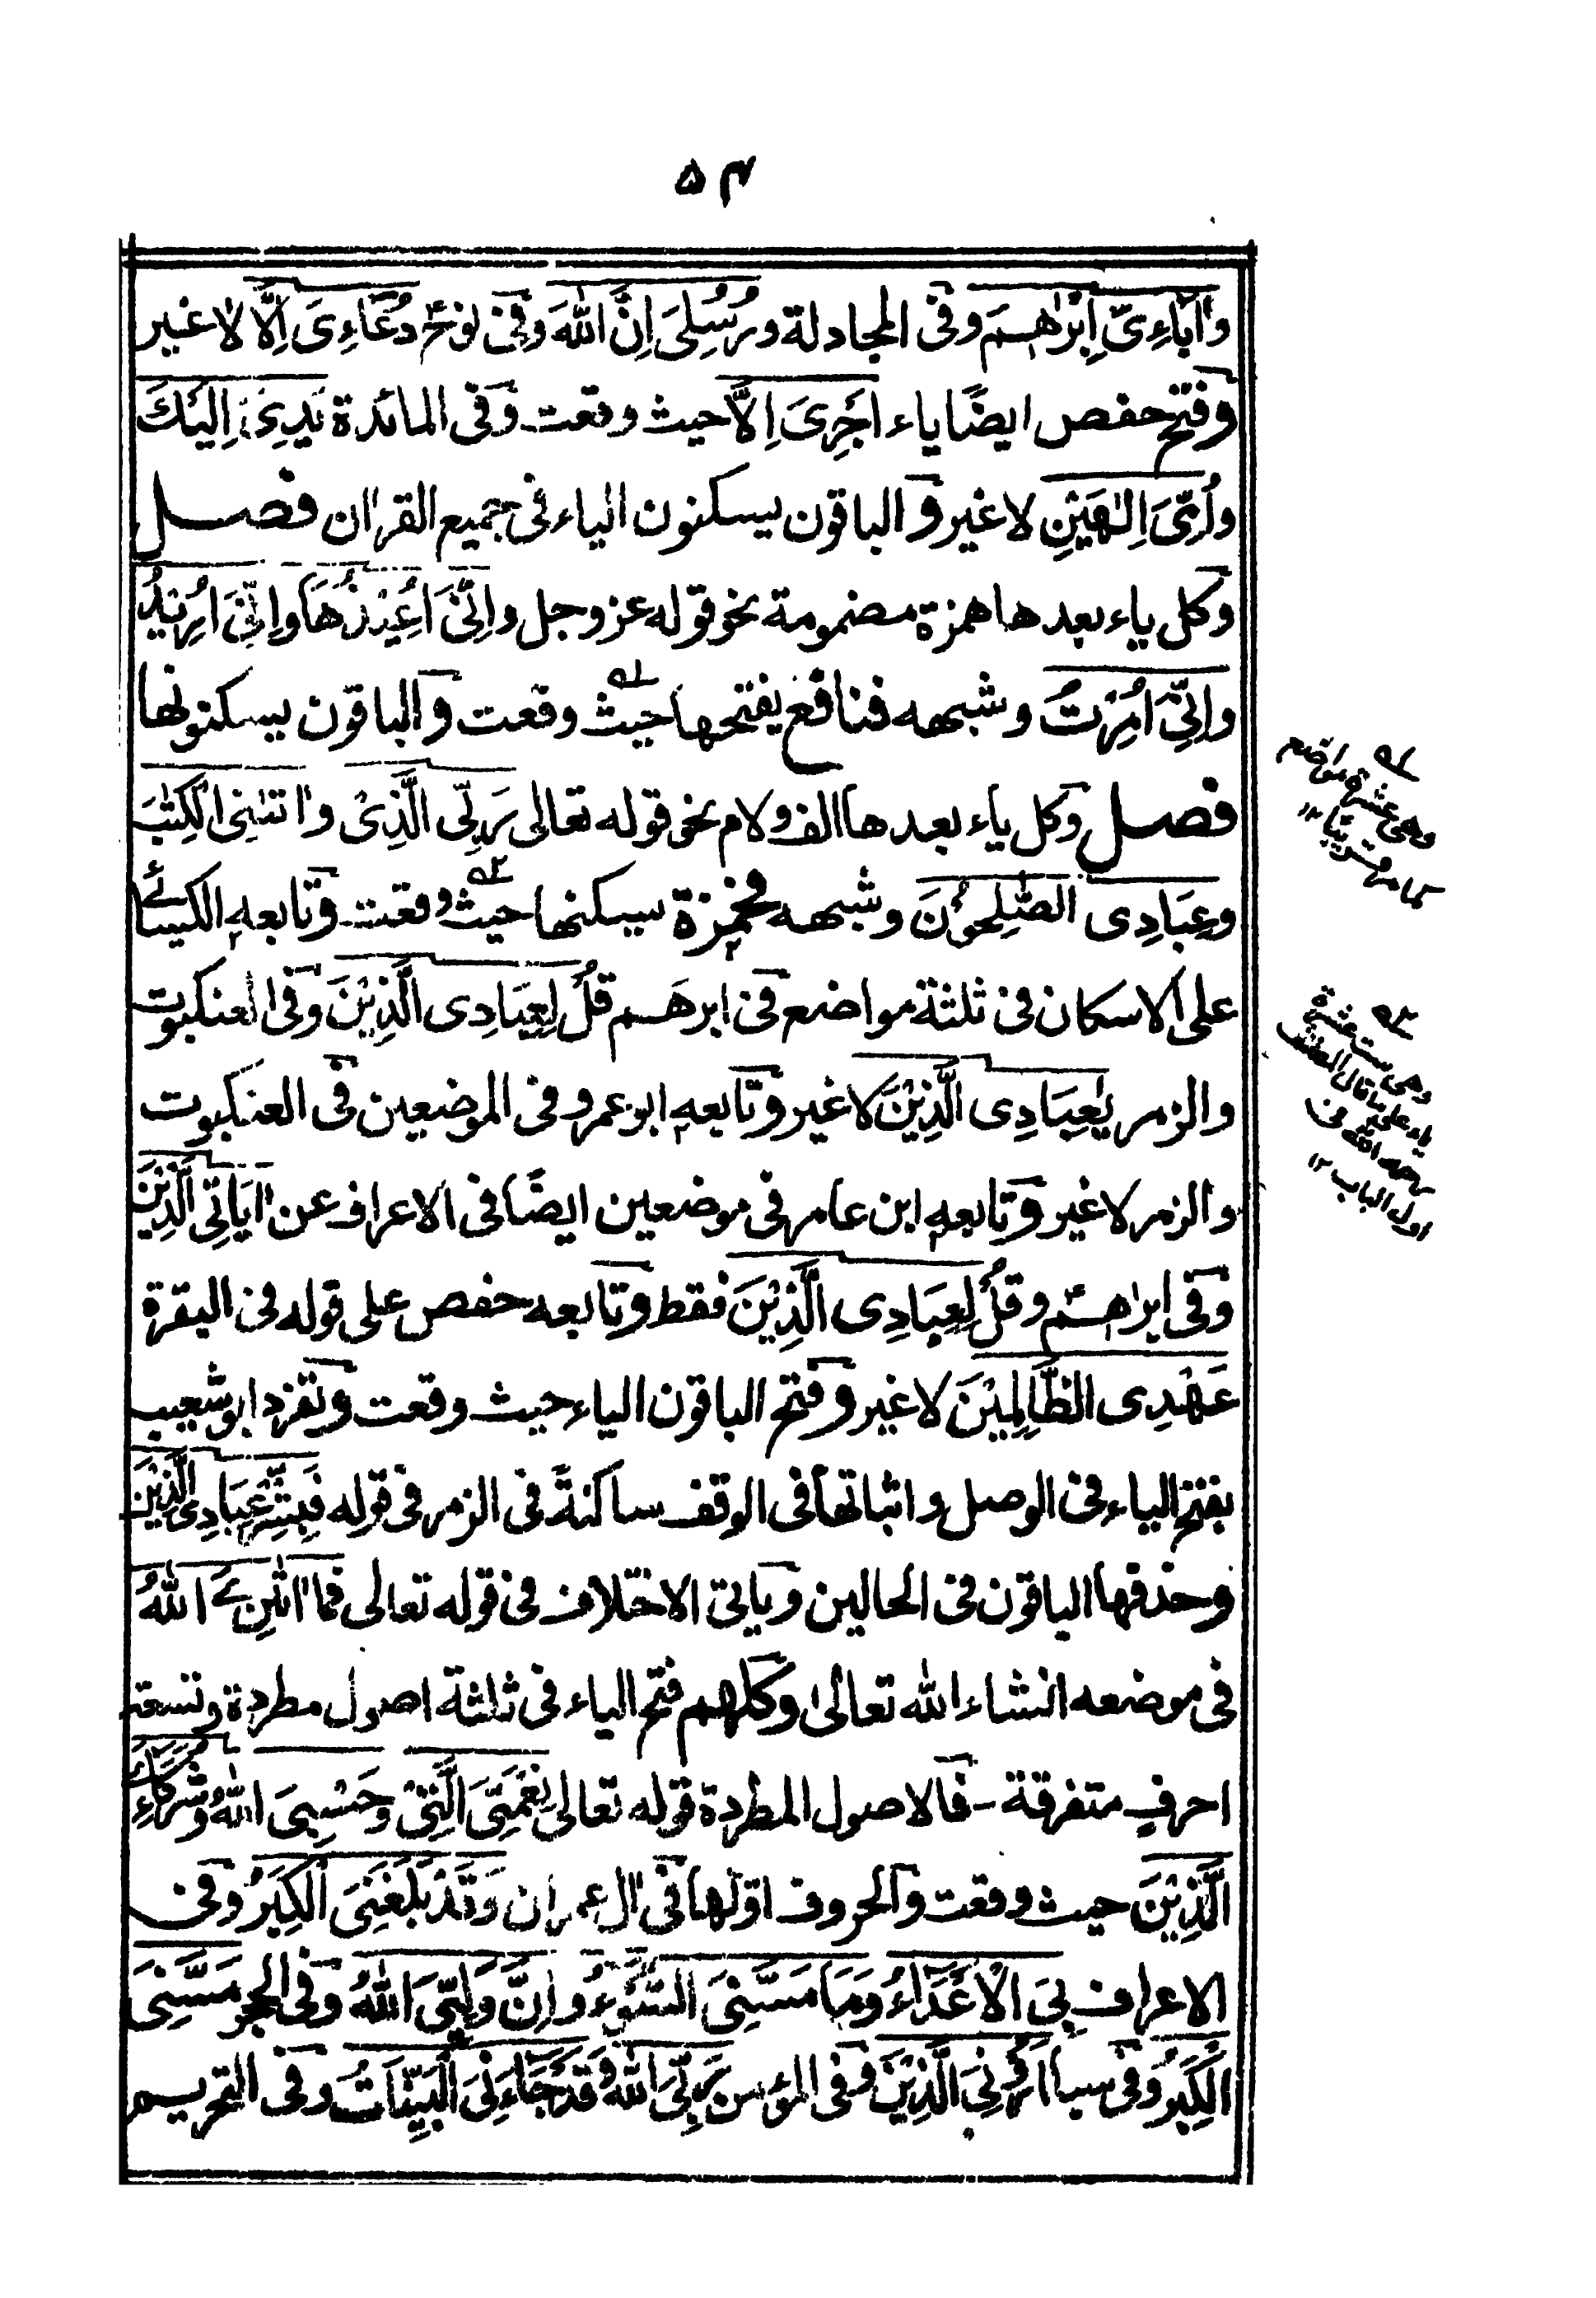 ۵۴
وَاٰبَآءِىَ اِبْرٰهِـيْمَ وفى المجادلة ورُسُلِىَ اِنَّ اللّٰهَ وفى نوح دُعَآءِىَ اِلَّا لا غير
وفتح حفص ايضًا ياء اَجْرِىَ اِلَّا حيث وقعت وفى المائدة يَدِىَ اِلَيْكَ
وَاُمِّىَ اِلٰهَيْنِ لا غير والباقون يسكنون الياء فى جميع القراٰن فصل
وكل ياء بعدها همزة مضمومة نحو قوله عز وجل وَاِنِّىَ اُعِيْذُهَا وَاِنِّىَ اُرِيْدُ
وَاِنِّىَ اُمِرْتُ وشبهه فنافع يفتحها حيث وقعت والباقون يسكنونها
فصل وكل ياء بعدها الف ولام نحو قوله تعالى رَبِّى الَّذِىْ وَاٰتٰىنِىَ الْكِتٰبَ
وعِبَادِى الصّٰلِحُوْنَ وشبهه فحمزة يسكنها حيث وقعت وتابعه الكسائے
على الاسكان فى ثلثة مواضع فى ابرهـيم قُلْ لِعِبَادِى الَّذِيْنَ وفى العنكبوت
والزمر يٰعِبَادِى الَّذِيْنَ لا غير وتابعه ابو عمرو فى الموضعين فى العنكبوت
والزمر لا غير وتابعه ابن عامر فى موضعين ايضًا فى الاعراف عن اٰيَاتِى الَّذِيْنَ
وفى ابراهيم وقُلْ لِعِبَادِى الَّذِيْنَ فقط وتابعه حفص على قوله فى البقرة
عَهْدِى الظَّالِمِيْنَ لا غير وفتح الباقون الياء حيث وقعت وتفرد ابو شعيب
بفتح الياء فى الوصل واثباتها فى الوقف ساكنةً فى الزمر فى قوله فَبَشِّرْ عِبَادِىَ الَّذِيْنَ
وحذفها الباقون فى الحالين وياتى الاختلاف فى قوله تعالى فما اٰتٰىنِۦَ اللّٰهُ
فى موضعه انشاء الله تعالىٰ وكلهم فتح الياء فى ثلثة اصول مطردة وتسعة
احرفٍ متفرقة - فالاصول المطردة قوله تعالى نِعْمَتِىَ الَّتِىْ وَحَسْبِىَ اللّٰهُ وشُرَكَآءِىَ
الَّذِيْنَ حيث وقعت والحروف اولها فى اٰل عمران وَقَدْ بَلَغَنِىَ الْكِبَرُ وفى
الاعراف بِىَ الْاَعْدَآءَ وَمَا مَسَّنِىَ السُّوْٓءُ واِنَّ وَلِيِّىَ اللّٰهُ وفى الحجر مَسَّنِىَ
الْكِبَرُ وفى سبا اَرُوْنِىَ الَّذِيْنَ وفى المؤمن رَبِّىَ اللّٰهُ وَقَدْ جَآءَنِىَ الْبَيِّنَاتُ وفى التحريم
وهى عشرة مواضع
كما مر قريبًا ۱۲
وهى ست عشرة
ياء على ما قال المصنف
رحمه الله فى
اول الباب ۱۲